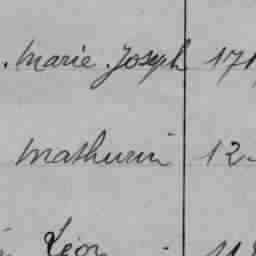 . Marie. Joseph 171
Mathurin 12.
Léon